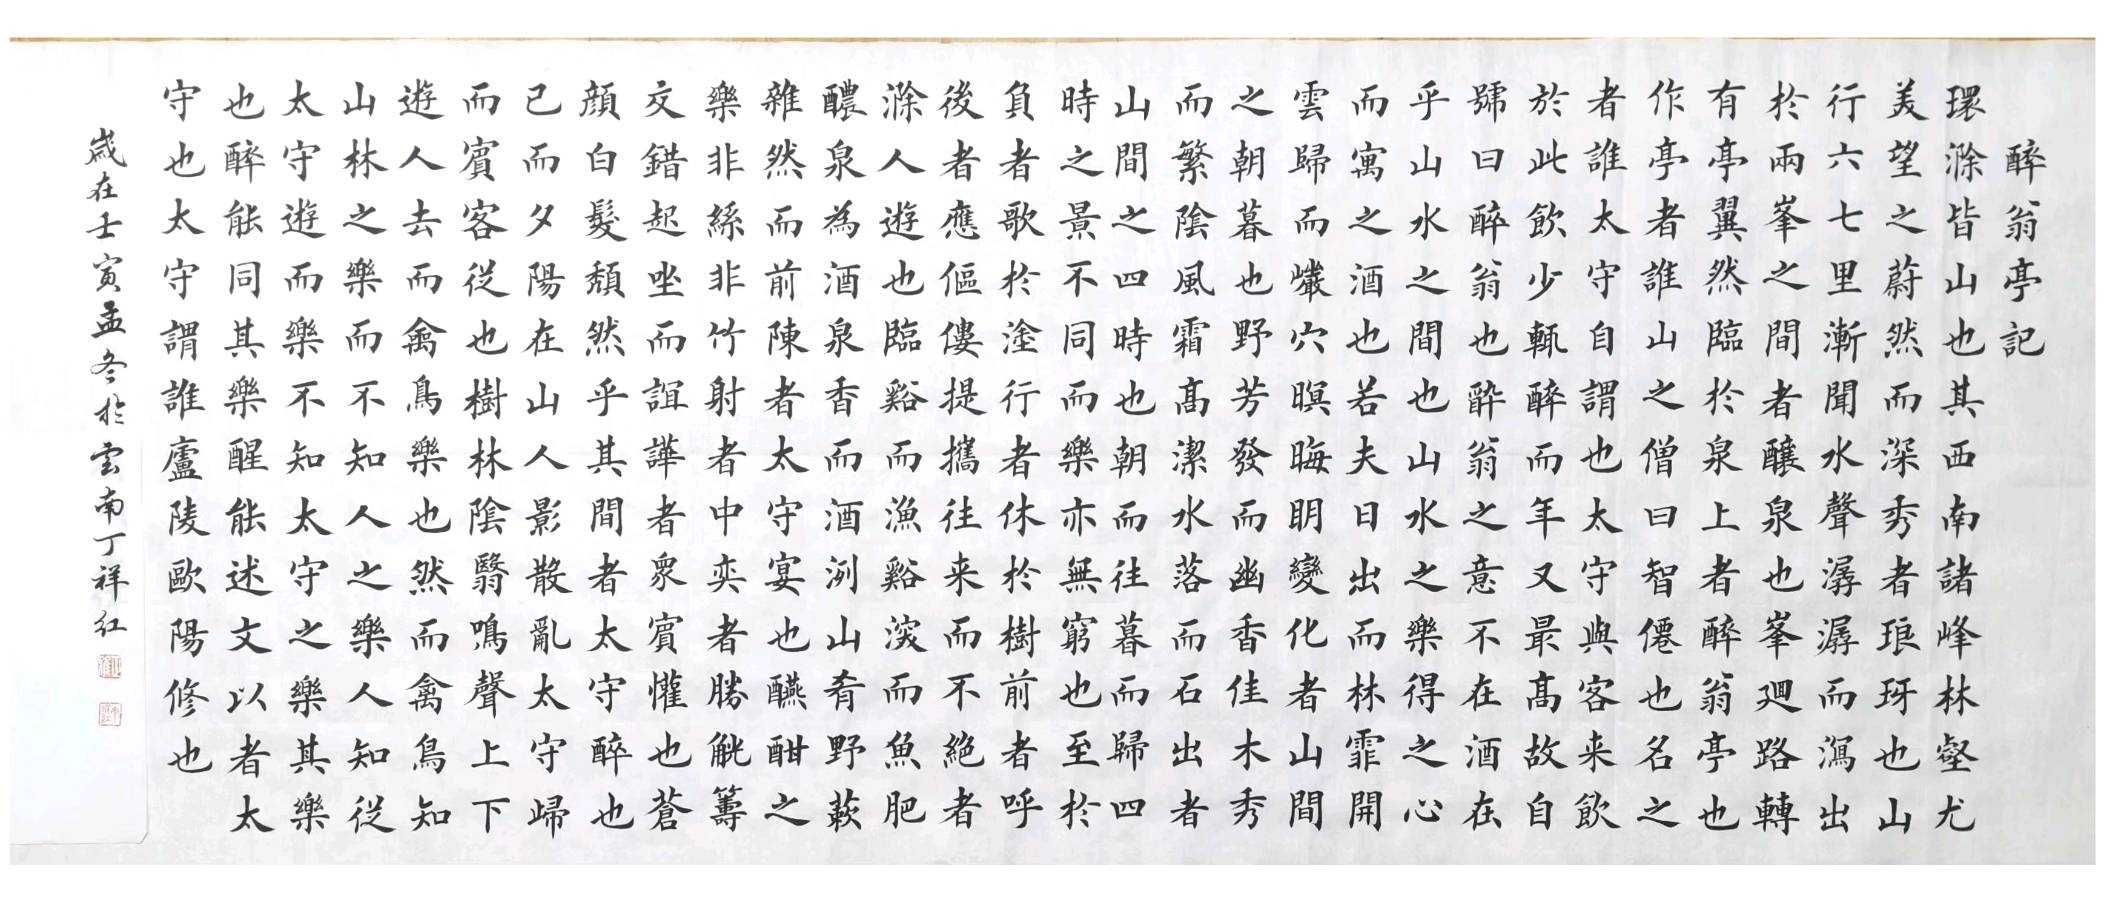 醉翁亭記
環滁皆山也其西南諸峰林壑尤
美望之蔚然而深秀者琅玡也山
行六七里漸聞水聲潺潺而瀉出
於兩峯之間者釀泉也峯迴路轉
有亭翼然臨於泉上者醉翁亭也
作亭者誰山之僧曰智僊也名之
者誰太守自謂也太守與客来飲
於此飲少輒醉而年又最高故自
號曰醉翁也醉翁之意不在酒在
乎山水之間也山水之樂得之心
而寓之酒也若夫日出而林霏開
雲歸而巖穴暝晦明變化者山間
之朝暮也野芳發而幽香佳木秀
而繁陰風霜高潔水落而石出者
山間之四時也朝而往暮而歸四
時之景不同而樂亦無窮也至於
負者歌於塗行者休於樹前者呼
後者應傴僂提攜往来而不絕者
滁人遊也臨谿而漁谿深而魚肥
醲泉為酒泉香而酒洌山肴野蔌
雜然而前陳者太守宴也醼酣之
樂非絲非竹射者中奕者勝觥籌
交錯起坐而諠譁者衆賓懽也蒼
顔白髮頹然乎其間者太守醉也
已而夕陽在山人影散亂太守歸
而賓客從也樹林陰翳鳴聲上下
遊人去而禽鳥樂也然而禽鳥知
山林之樂而不知人之樂人知從
太守遊而樂不知太守之樂其樂
也醉能同其樂醒能述文以者太
守也太守謂誰廬陵歐陽修也
歲在壬寅孟冬於雲南丁祥红